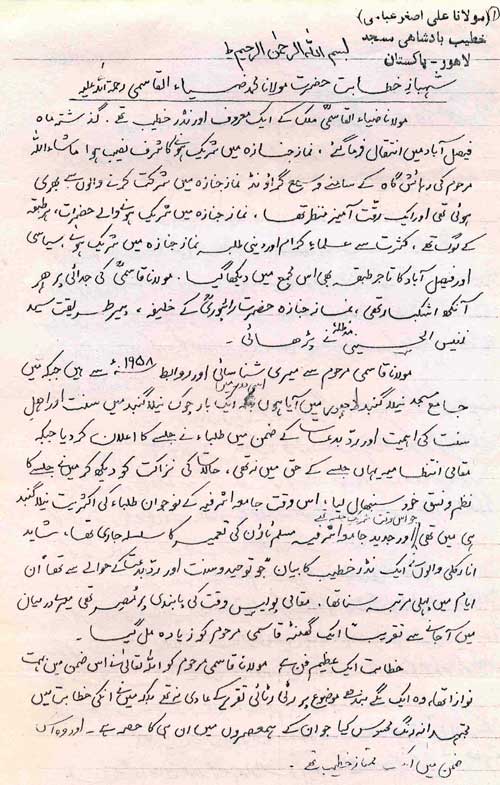 (۱) (مولانا علی اصغر عباسی)
خطیب بادشاہی مسجد
لاہور - پاکستان
بسم اللہ الرحمٰن الرحیم ط
شہبازِ خطابت حضرت مولانا محمد ضیاء القاسمی رحمۃ اللہ علیہ
مولانا ضیاء القاسمیؒ ملک کے ایک معروف اور نڈر خطیب تھے۔ گذشتہ ماہ
فیصل آباد میں انتقال فرما گئے، نماز جنازہ میں شریک ہونے کا شرف نصیب ہوا ماشاء اللہ
مرحوم کی رہائش گاہ کے سامنے وسیع گراؤنڈ نماز جنازہ میں شرکت کرنے والوں سے بھری
ہوئی تھی اور ایک رقّت آمیز منظر تھا، نماز جنازہ میں شریک ہونے والے حضرات، ہر طبقہ
کے لوگ تھے، کثرت سے علماءِ کرام اور دینی طلبہ نماز جنازہ میں شریک ہوئے، سیاسی
اور فیصل آباد کا تاجر طبقہ بھی اس مجمع میں دیکھا گیا۔ مولانا قاسمیؒ کی جدائی پر ھر
آنکھ اشکبار تھی، نماز جنازہ حضرت رائپوریؒ کے خلیفہ، پیر طریقت سید
نفیس الحسینی مدظلہ نے پڑھائی۔
مولانا قاسمی مرحوم سے میری شناسائی اور روابط ۱۹۵۸ء سے ہیں جبکہ میں
جامع مسجد نیلا گنبد لاہور میں آیا ہوں اسی دور میں ایک بار چوک نیلا گنبد میں سنت اور اھل
سنت کی اہمیت اور ردّ بدعات کے ضمن میں طلباء نے جلسے کا اعلان کر دیا جبکہ
مقامی انتظامیہ یہاں جلسے کے حق میں نہ تھی، حالات کی نزاکت کو دیکھ کر میں نے جلسے کا
نظم و نسق خود سنبھال لیا، اس وقت جامعہ اشرفیہ کے نوجوان طلباء کی اکثریت نیلا گنبد
ہی میں تھی جو اس وقت اور جدید جامعہ اشرفیہ مسلم ٹاؤن کی تعمیر کا سلسلہ جاری تھا، شاید
انارکلی والوں نے ایک نڈر خطیب کا بیان جو توحید و سنت اور ردّ بدعت کے حوالے سے تھا اُن
ایام میں پہلی مرتبہ سنا تھا۔ مقامی پولیس وقت کی پابندی پر مُصِر تھی میرے درمیان
میں آ جانے سے تقریباً ایک گھنٹہ قاسمی مرحوم کو زیادہ مل گیا۔
خطابت ایک عظیم فن ہے مولانا قاسمی مرحوم کو اللہ تعالیٰ نے اس ضمن میں بہت
نوازا تھا، وہ ایک لگے بندھے موضوع پر رٹی رٹائی تقریر کے عادی نہ تھے بلکہ میں نے انکی خطابت میں
مجتہدانہ رنگ محسوس کیا جو ان کے ہمعصروں میں ان ہی کا حصہ ہے۔ اور وہ اس
ضمن میں ایک ممتاز خطیب تھے۔